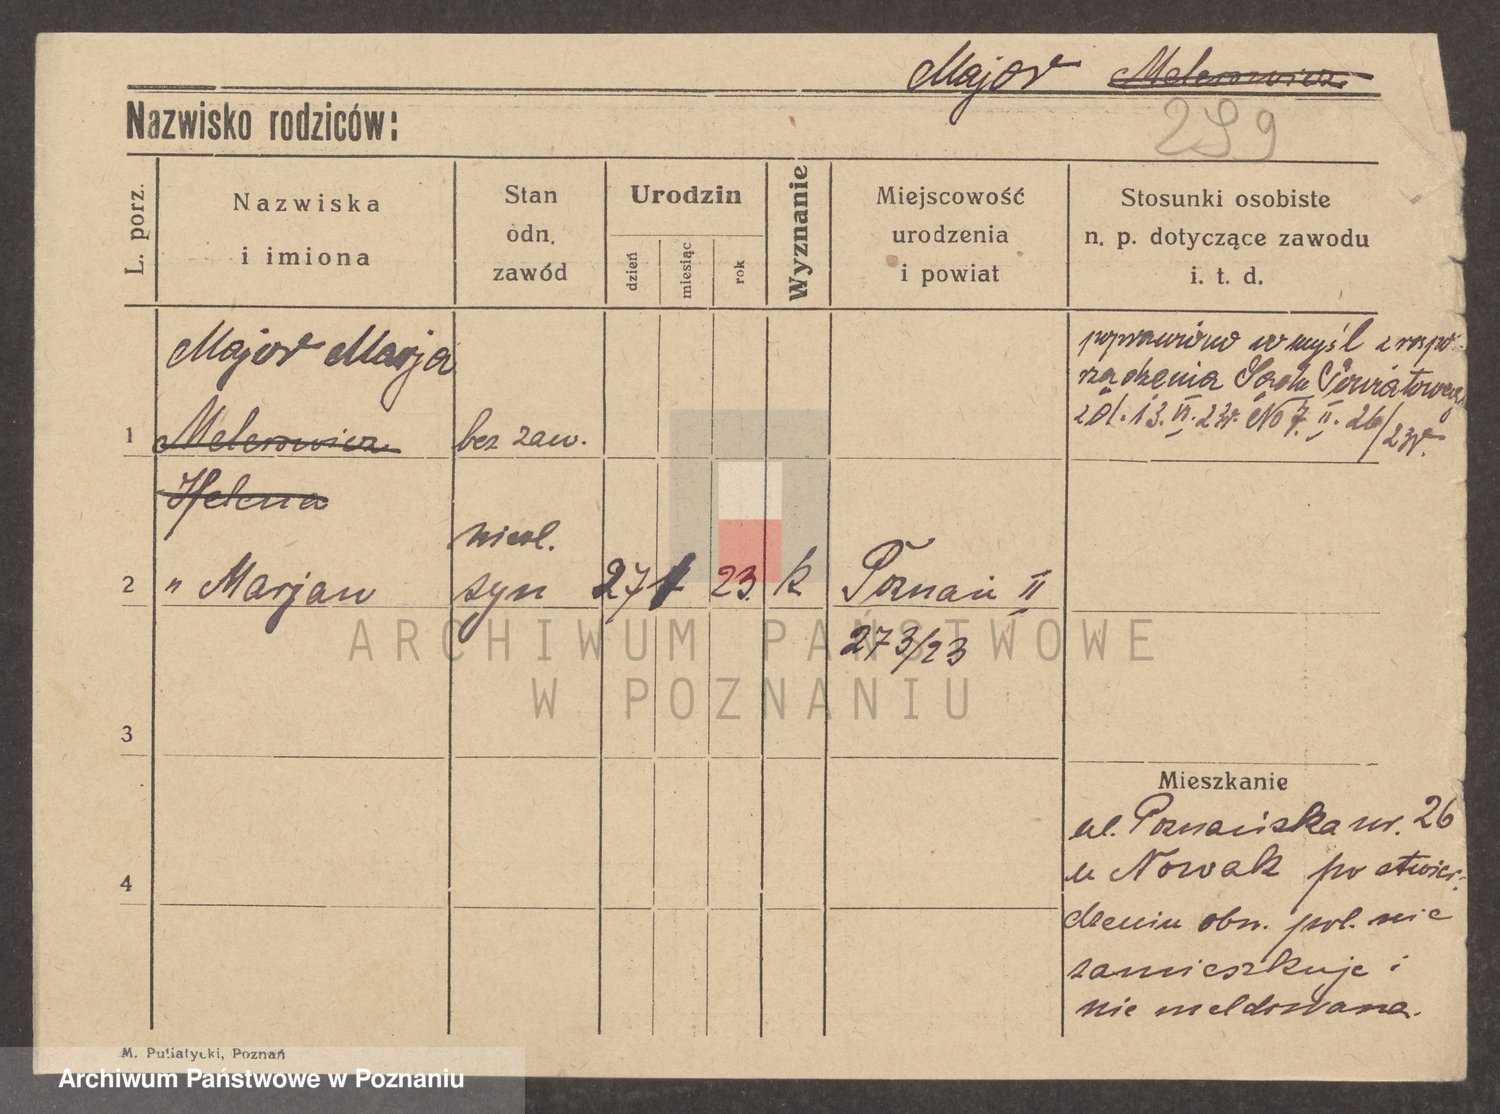 Major Melerowicz
299
Nazwisko rodziców:
L. porz.
Nazwiska
i imiona
Stan
odn.
zawód
Urodzin
dzień
miesiąc
rok
Wyznanie
Miejscowość
urodzenia
i powiat
Stosunki osobiste
n. p. dotyczące zawodu
i. t. d.
Major Marja
1 Melerowicz bez zaw.
Helena
poprawiono w myśl rozpo-
rządzenia Sądu Powiatowego
z dl. 13. VI. 23r. No 7. II. 26/23r.
nieśl.
2 " Marjan syn 27 1 23. k Poznań II
273/23
3
4
Mieszkanie
ul. Poznańska nr. 26
u Nowak po stwier-
dzeniu obw. pol. nie
zamieszkuje i
nie meldowana.
M. Putiatycki, Poznań
ARCHIWUM PAŃSTWOWE
W POZNANIU
Archiwum Państwowe w Poznaniu